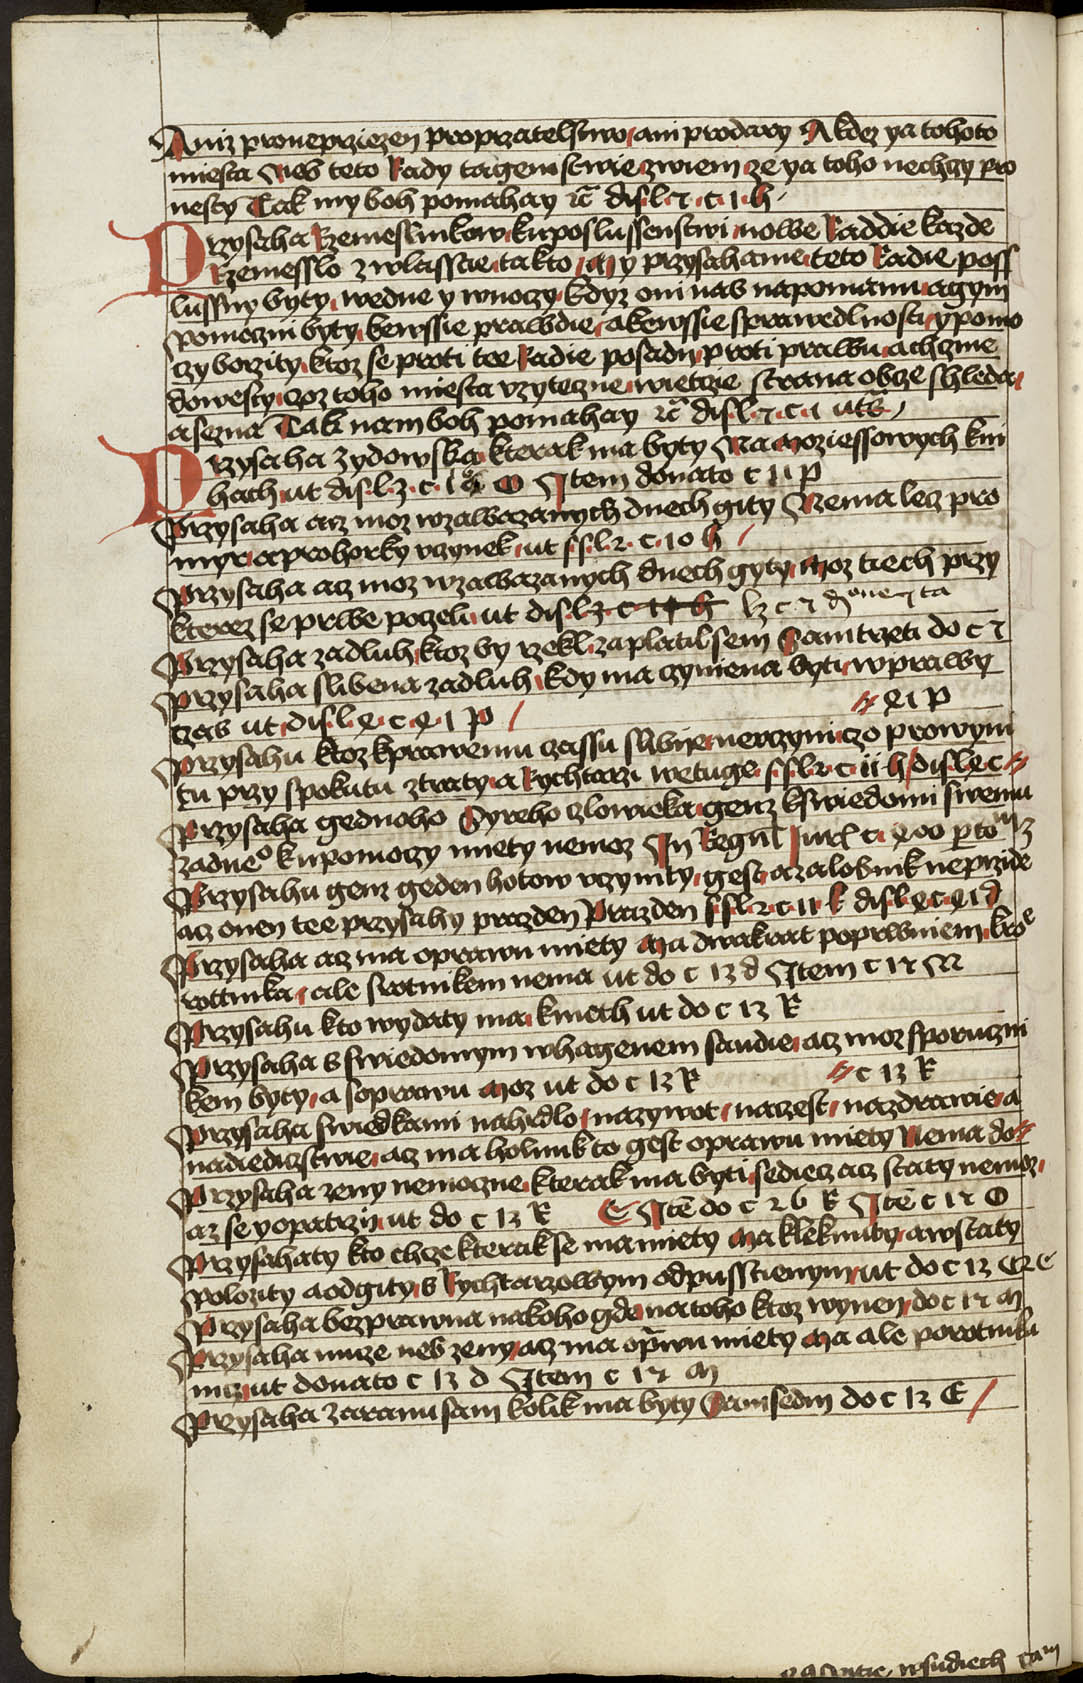 Aniz proneprziezen proprzatelstwo ani prodary Akdez ya tohoto
miesta Neb teto Rady tagemstwie zwiem ze ya toho nechczy pro
nesty Tak my boh pomahay
Przysaha Rzemeslnikow kuposlussenstwi nowe Raddie kazde
Rzemesslo zwlasscie takto My przysahame teto Radie poss
lussny byty wedne y wnoczy kdyz oni nas napomanu agym
pomoczni byty kewssie prawdie akewssie sprawedlnosti ypomo
czy borzity ktoz se proti tee Radie posadu proti prawu achzme
dowesty czoz toho miesta vzyteczne wietczie strana obcze shleda
asezna Tak nam boh pomahay
Przysaha zydowska kterak ma byty Na Moziessowych kni
hach ut dis. l. 3. c. O Item donato c 11 p
Przysaha acz moz wzawazanych dnech gity Nema lecz pro
myr aprohorky vczynek ut s. s. l. 2. c. 10 h
Przysaha acz moz wzawazanych dnech gyty Moz tiech przy
kterez se prwe poczelu ut dis. l. 3. c.
Przysaha zadluh ktoz by rzekl zaplatil sem Sam trzeti do c 7
Przysaha slibena zadluh kdy ma czyniena byti wprawy
czas ut dis. l. 4. c. 41 p // 41 p
Przysahu ktoz kprawemu czassu slibije nevczyni czo prowynu
tu przy spokutu ztraty a Rychtarzi wetuge s. s. l. 2. c. 11 h dis. l. 4. c //
Przysaha gednoho Syreho czlowieka genz kswiedomi swemu
zadne° kupomoczy miety nemoz In Regul Jur c. 400
Przysahu genz geden hotow vczynity gest azalobnik neprzide
acz onen tee przysahy prazden Prazden s. s. l. 2. c. 11. k dis. l. 4. c. 41 d
Przysaha acz ma oprawu miety Ma dwakrat poprwniem kro
rottnika ale swotnikem nema ut do c 13 d Item c 14 M
Przysahu kto wydaty ma kmeth ut do c 13 R
Przysaha s swiedomym whagenem saudie acz moz sporuczni
kem byty a soprawu Moz ut do c 13 R // c 13 R
Przysaha swiedkami nahrdlo nazywot naczest nazdrawie a
nadiediczstwie acz ma holnik to gest oprawu miety Nema do //
Przysaha zeny nemoczne kterak ma byti sedieci acz staty nemoz
az se yopatrzij ut do c 13 R E Ite do c 26 R Ite c 14 O
Przysahaty kto chze kterak se ma miety Ma kleknuty awstaty
polozity aodgity s Rychtarzowym odpusstienym ut do c 13
Przysaha bezprawna nakoho gde na toho ktoz wynen do c 14 M
Przysaha muze neb zeny acz ma oprwu miety Ma ale porotniku
nicz ut donato c 13 d Item c 14 M
Przysaha zaranu sam kolik ma byty Sam sedm do c 13 E
wsudiech